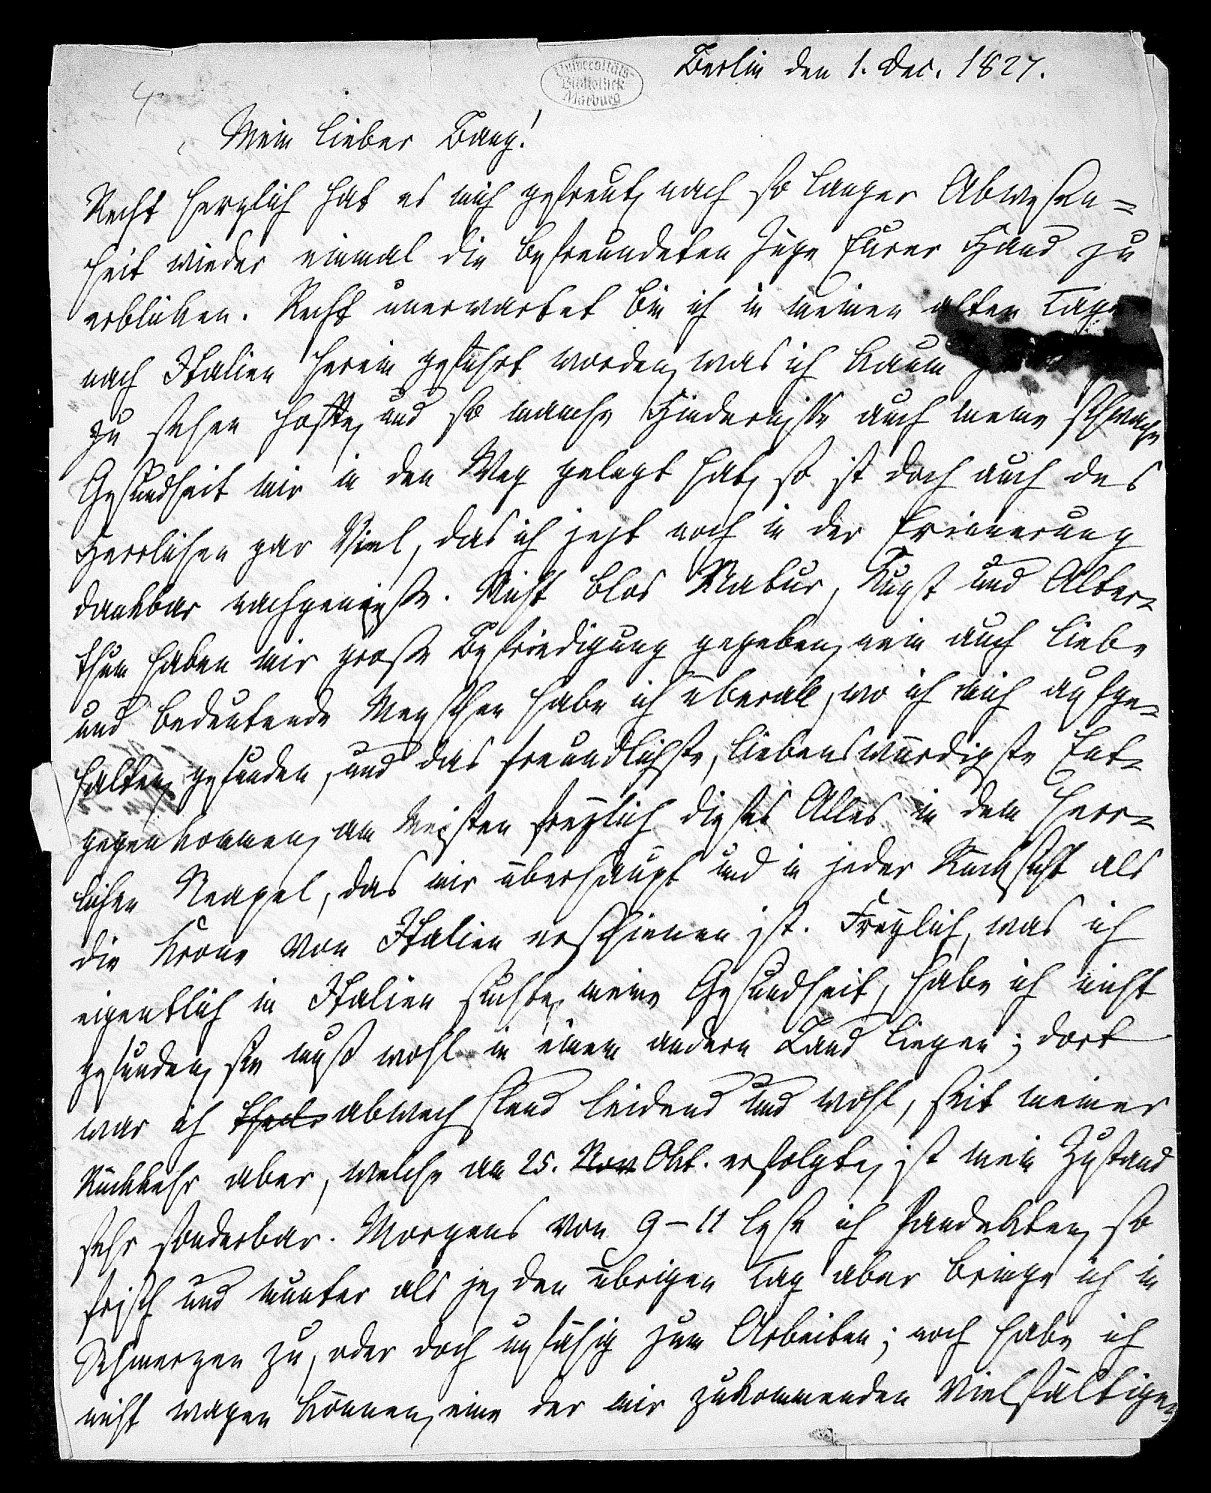 Berlin den 1. Dec. 1827.
Universitäts-
Bibliothek
Marburg
Mein lieber Bang!
Recht herzlich hat es mich gefreut, nach so langer Abwesen=
heit wieder einmal die befreundeten Züge Eurer Hand zu
erblicken. Recht unerwartet bin ich in meinen alten Tagen
nach Italien herein geführt worden, was ich kaum
zu sehen hoffte, und so manche Hindernisse auch meine schwache
Gesundheit mir in den Weg gelegt hat, so ist doch auch des
Herrlichen gar Viel, das ich jetzt noch in der Erinnerung
dankbar nachgenieße. Nicht blos Natur, Kunst und Alter=
thum haben mir große Befriedigung gegeben, nein auch liebe
und bedeutende Menschen habe ich überall, wo ich mich aufge=
halten, gefunden, und das freundlichste, liebenswürdigste Ent=
gegenkommen, am Meisten freylich dieses Alles in dem herr=
lichen Neapel, das mir überhaupt und in jeder Rücksicht als
die Krone von Italien erschienen ist. Freylich, was ich
eigentlich in Italien suchte, meine Gesundheit, habe ich nicht
gefunden, sie muß wohl in einem andern Land liegen; dort
war ich theils abwechslend leidend und wohl, seit meiner
Rückkehr aber, welche am 25. Nov Okt. erfolgte, ist mein Zustand
sehr sonderbar. Morgens von 9–11 lese ich Pandekten, so
frisch und munter als je, den übrigen Tag aber bringe ich in
Schmerzen zu, oder doch unfähig zum Arbeiten; noch habe ich
nicht wagen können, eine der mir zukommenden vielfältigen